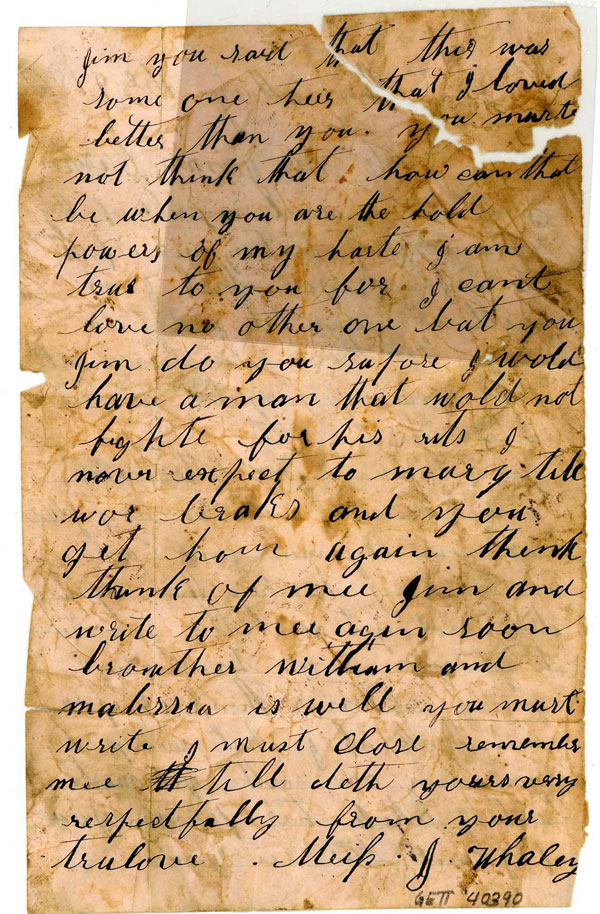 Jim you said that this was
some one heer that I loved
better than you. you murte
not think that how can that
be when you are the hold
powers of my harte I am
true to you for I cant
love no other one but you
Jim do you supose I wold
have a man that wold not
fighte for his rits I
never expect to mary till
wor breaks and you
get hom again think
thunk of mee Jim and
write to mee agin soon
brouther william and
malissia is well you must
write I must close remember
mee till deth yours very
respectfully from your
trulove . Meiss . J. Whaley
GETT 40390